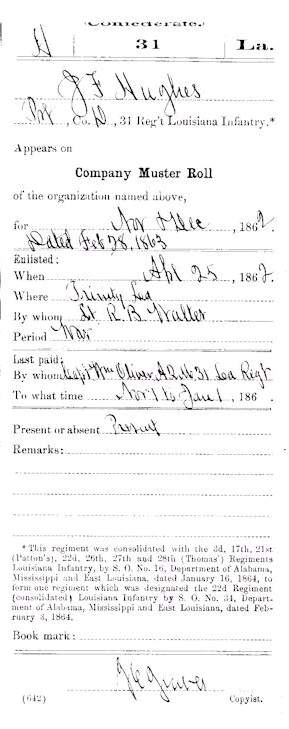 (Confederate.)
H 31 La.
J F Hughes
Pvt, Co. D, 31 Reg't Louisiana Infantry.*
Appears on
Company Muster Roll
of the organization named above,
for Nov & Dec, 1862.
Dated Feb 28, 1863
Enlisted:
When Apl 25, 1862.
Where Trinity La
By whom Lt. R B Waller
Period War
Last paid:
By whom Capt Wm Oliver A.Q.M. 31 La Regt
To what time Nov 1 to Jan 1, 186 .
Present or absent Present
Remarks:
*This regiment was consolidated with the 3d, 17th, 21st
(Patton's), 22d, 26th, 27th and 28th (Thomas') Regiments
Louisiana Infantry, by S. O. No. 16, Department of Alabama,
Mississippi and East Louisiana, dated January 16, 1864, to
form one regiment which was designated the 22d Regiment
(consolidated) Louisiana Infantry by S. O. No. 34, Depart-
ment of Alabama, Mississippi and East Louisiana, dated Feb-
ruary 3, 1864.
Book mark:
(642) Copyist.